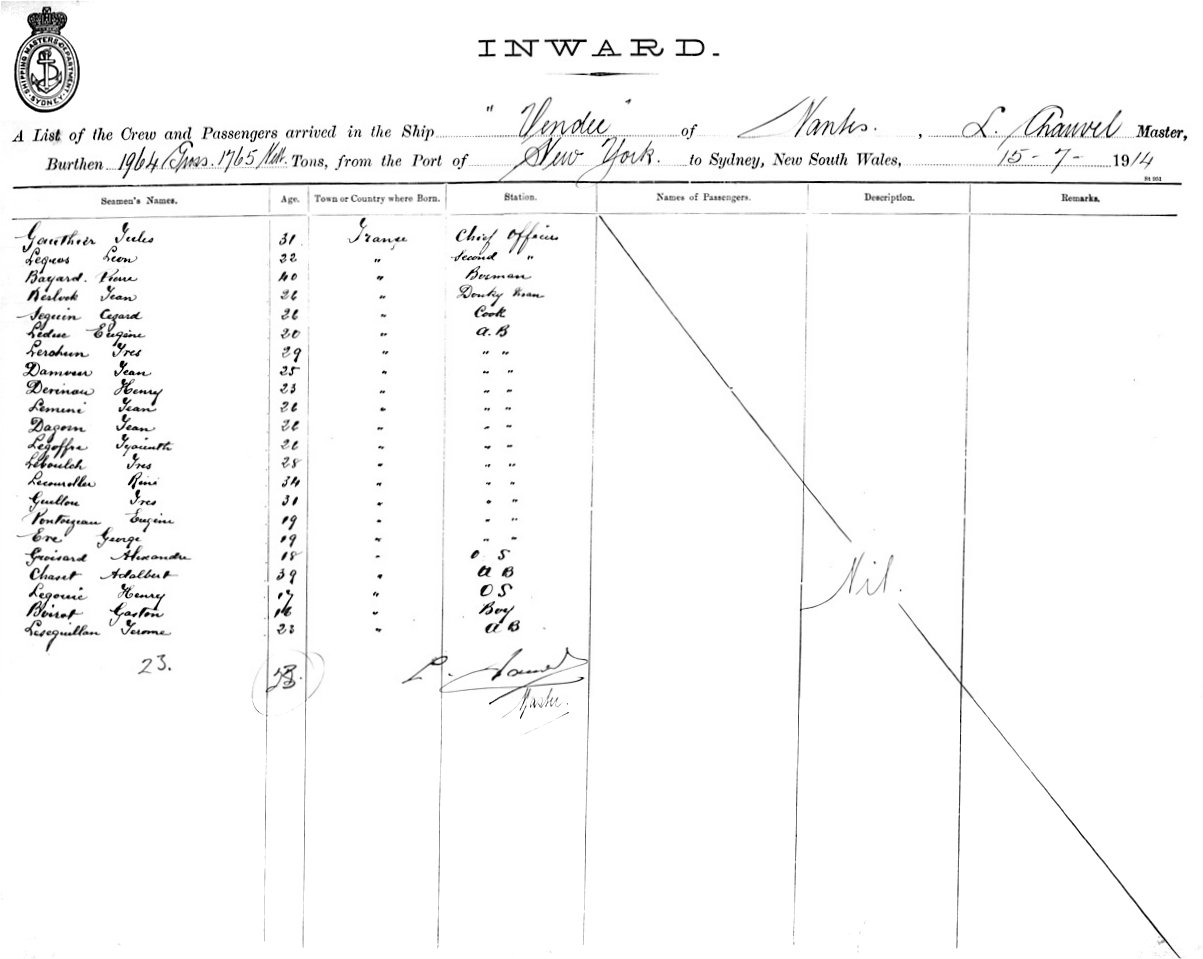 SHIPPING MASTERS DEPARTMENT
SYDNEY
INWARD.
A List of the Crew and Passengers arrived in the Ship "Vendee" of Nantes. , L. Chauvel Master,
Burthen 1964 Gross. 1765 Nett. Tons, from the Port of New York. to Sydney, New South Wales, 15-7-1914
Seamen's Names. Age. Town or Country where Born. Station. Names of Passengers. Description. Remarks.
Gauthier Jules 31 Franse Chief Officier
Leon 22 " Second "
Bayard. Pierre 40 " Bosman
Jean 26 " Donky man
Seguin Cezard 26 " Cook
Leduc Eugine 20 " A.B
Yves 29 " " "
Jean 25 " " "
Henry 23 " " "
Jean 26 " " "
Dagorn Jean 26 " " "
Legoffre 26 " " "
Leboulch Yves 28 " " "
Réné 34 " " "
Guillou Yves 31 " " "
Eugine 19 " " "
Eve George 19 " " "
Alexandre 18 " O S
Adalbert 39 " A B
Henry 17 " O S
Gaston 16 " Boy
Jerome 23 " A B
Nil.
23. 23 L. Chauvel
Master.